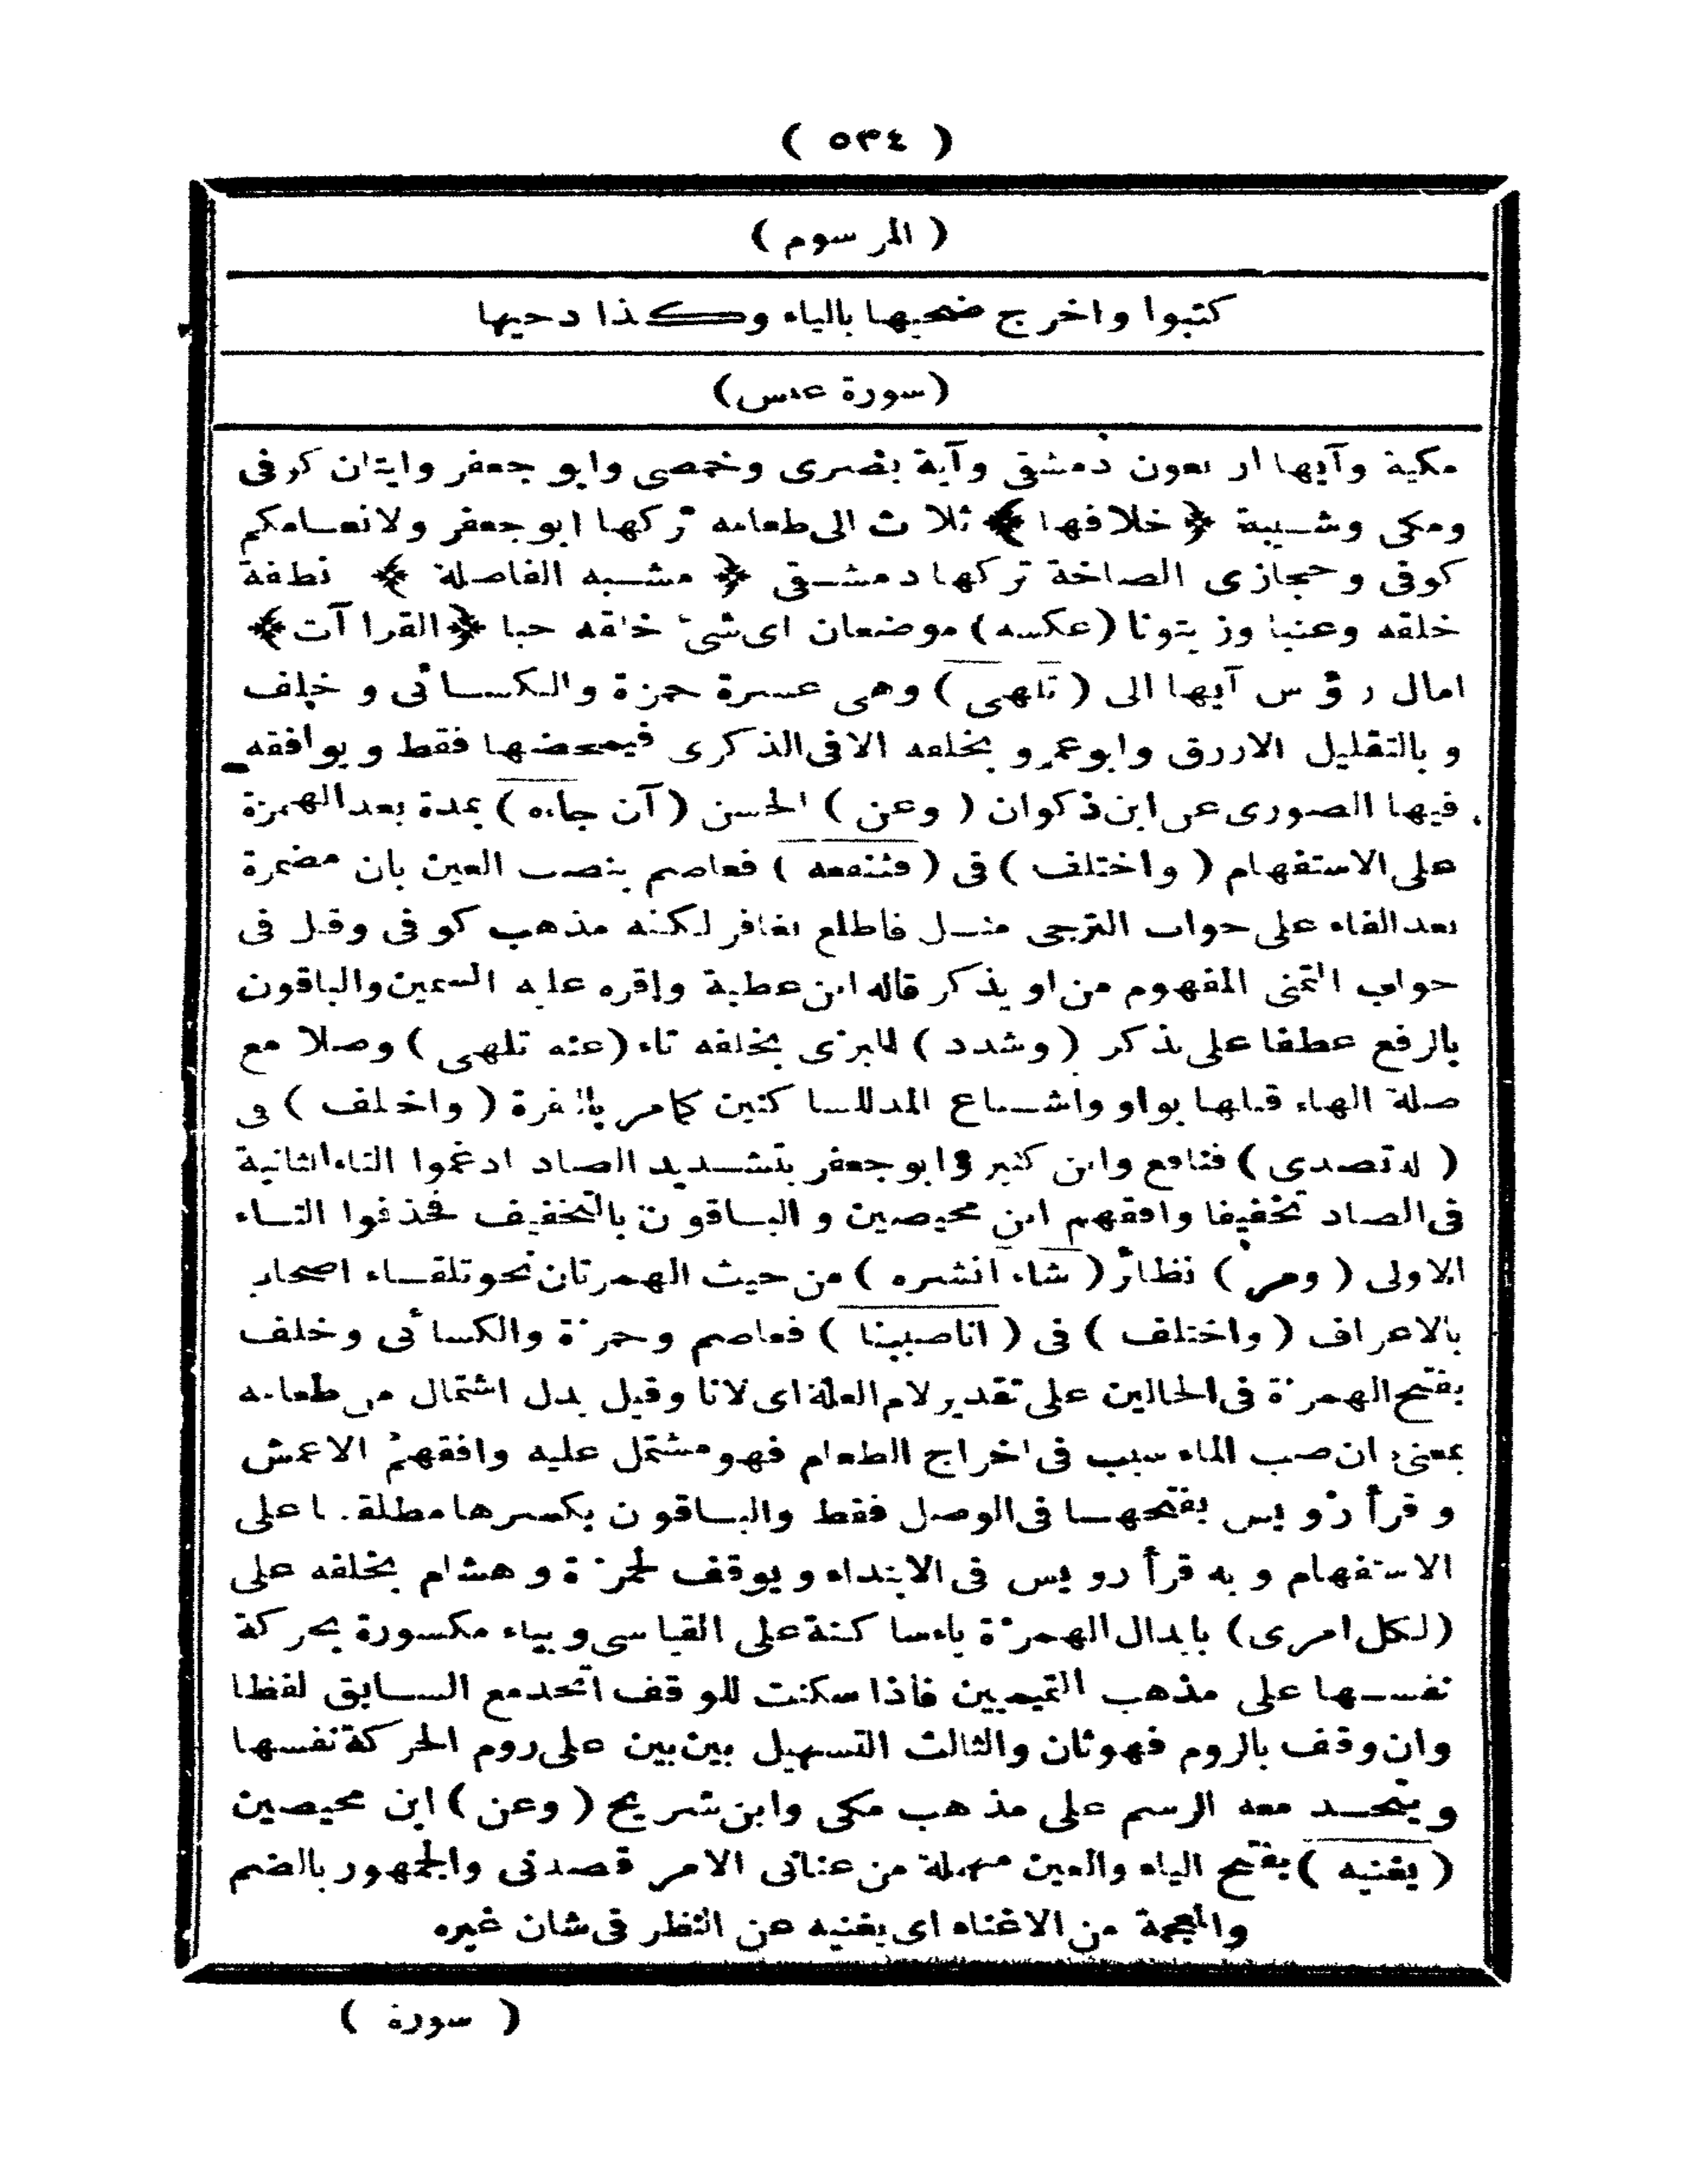 ( ٥٣٤ )
( المرسوم )
كتبوا واخرج ضحيها بالياء وكذا دحيها
(سورة عبس)
مكية وآيها اربعون دمشقى وآية بصرى وحمصى وابو جعفر وايتان كوفى
ومكى وشيبة ﴿ خلافها ﴾ ثلاث الى طعامه تركها ابو جعفر ولانعامكم
كوفى وحجازى الصاخة تركها دمشقى ﴿ مشبه الفاصلة ﴾ نطفة
خلقه وعنبا وزيتونا (عكسه) موضعان اى شئ خلقه حبا ﴿ القراآت ﴾
امال رؤس آيها الى ( تلهى ) وهى عشرة حمزة والكسائى وخلف
وبالتقليل الازرق وابو عمرو بخلفه الا فى الذكرى فيمحضها فقط ويوافقه
فيها الصورى عن ابن ذكوان ( وعن ) الحسن ( آن جاءه ) بمدة بعد الهمزة
على الاستفهام ( واختلف ) فى ( فتنفعه ) فعاصم بنصب العين بان مضمرة
بعد الفاء على جواب الترجى مثل فاطلع بغافر لكنه مذهب كوفى وقيل فى
جواب التمنى المفهوم من او يذكر قاله ابن عطية واقره عليه السمين والباقون
بالرفع عطفا على يذكر ( وشدد ) للبزى بخلفه تاء (عنه تلهى ) وصلا مع
صلة الهاء قبلها بواو واشباع المد للساكنين كمامر بالبقرة ( واختلف ) فى
( له تصدى ) فنافع وابن كثير وابو جعفر بتشديد الصاد ادغموا التاء الثانية
فى الصاد تخفيفا وافقهم ابن محيصين والباقون بالتخفيف فحذفوا التاء
الاولى ( ومر ) نظائر ( شاء انشره ) من حيث الهمزتان نحو تلقاء اصحاب
بالاعراف ( واختلف ) فى ( اناصببنا ) فعاصم وحمزة والكسائى وخلف
بفتح الهمزة فى الحالين على تقدير لام العلة اى لانا وقيل بدل اشتمال من طعامه
بمعنى ان صب الماء سبب فى اخراج الطعام فهو مشتمل عليه وافقهم الاعمش
وقرأ رويس بفتحها فى الوصل فقط والباقون بكسرها مطلقا على
الاستفهام وبه قرأ رويس فى الابتداء ويوقف لحمزة وهشام بخلفه على
(لكل امرى) بابدال الهمزة ياء ساكنة على القياسى وبياء مكسورة بحركة
نفسها على مذهب التميميين فاذا سكنت للوقف اتحد مع السابق لفظا
وان وقف بالروم فهو ثان والثالث التسهيل بين بين على روم الحركة نفسها
ويتحد معه الرسم على مذهب مكى وابن شريح ( وعن ) ابن محيصين
( يغنيه ) بفتح الياء والعين مهملة من عنانى الامر قصدنى والجمهور بالضم
والمعجمة من الاغناء اى يغنيه عن النظر فى شان غيره
( سورة )